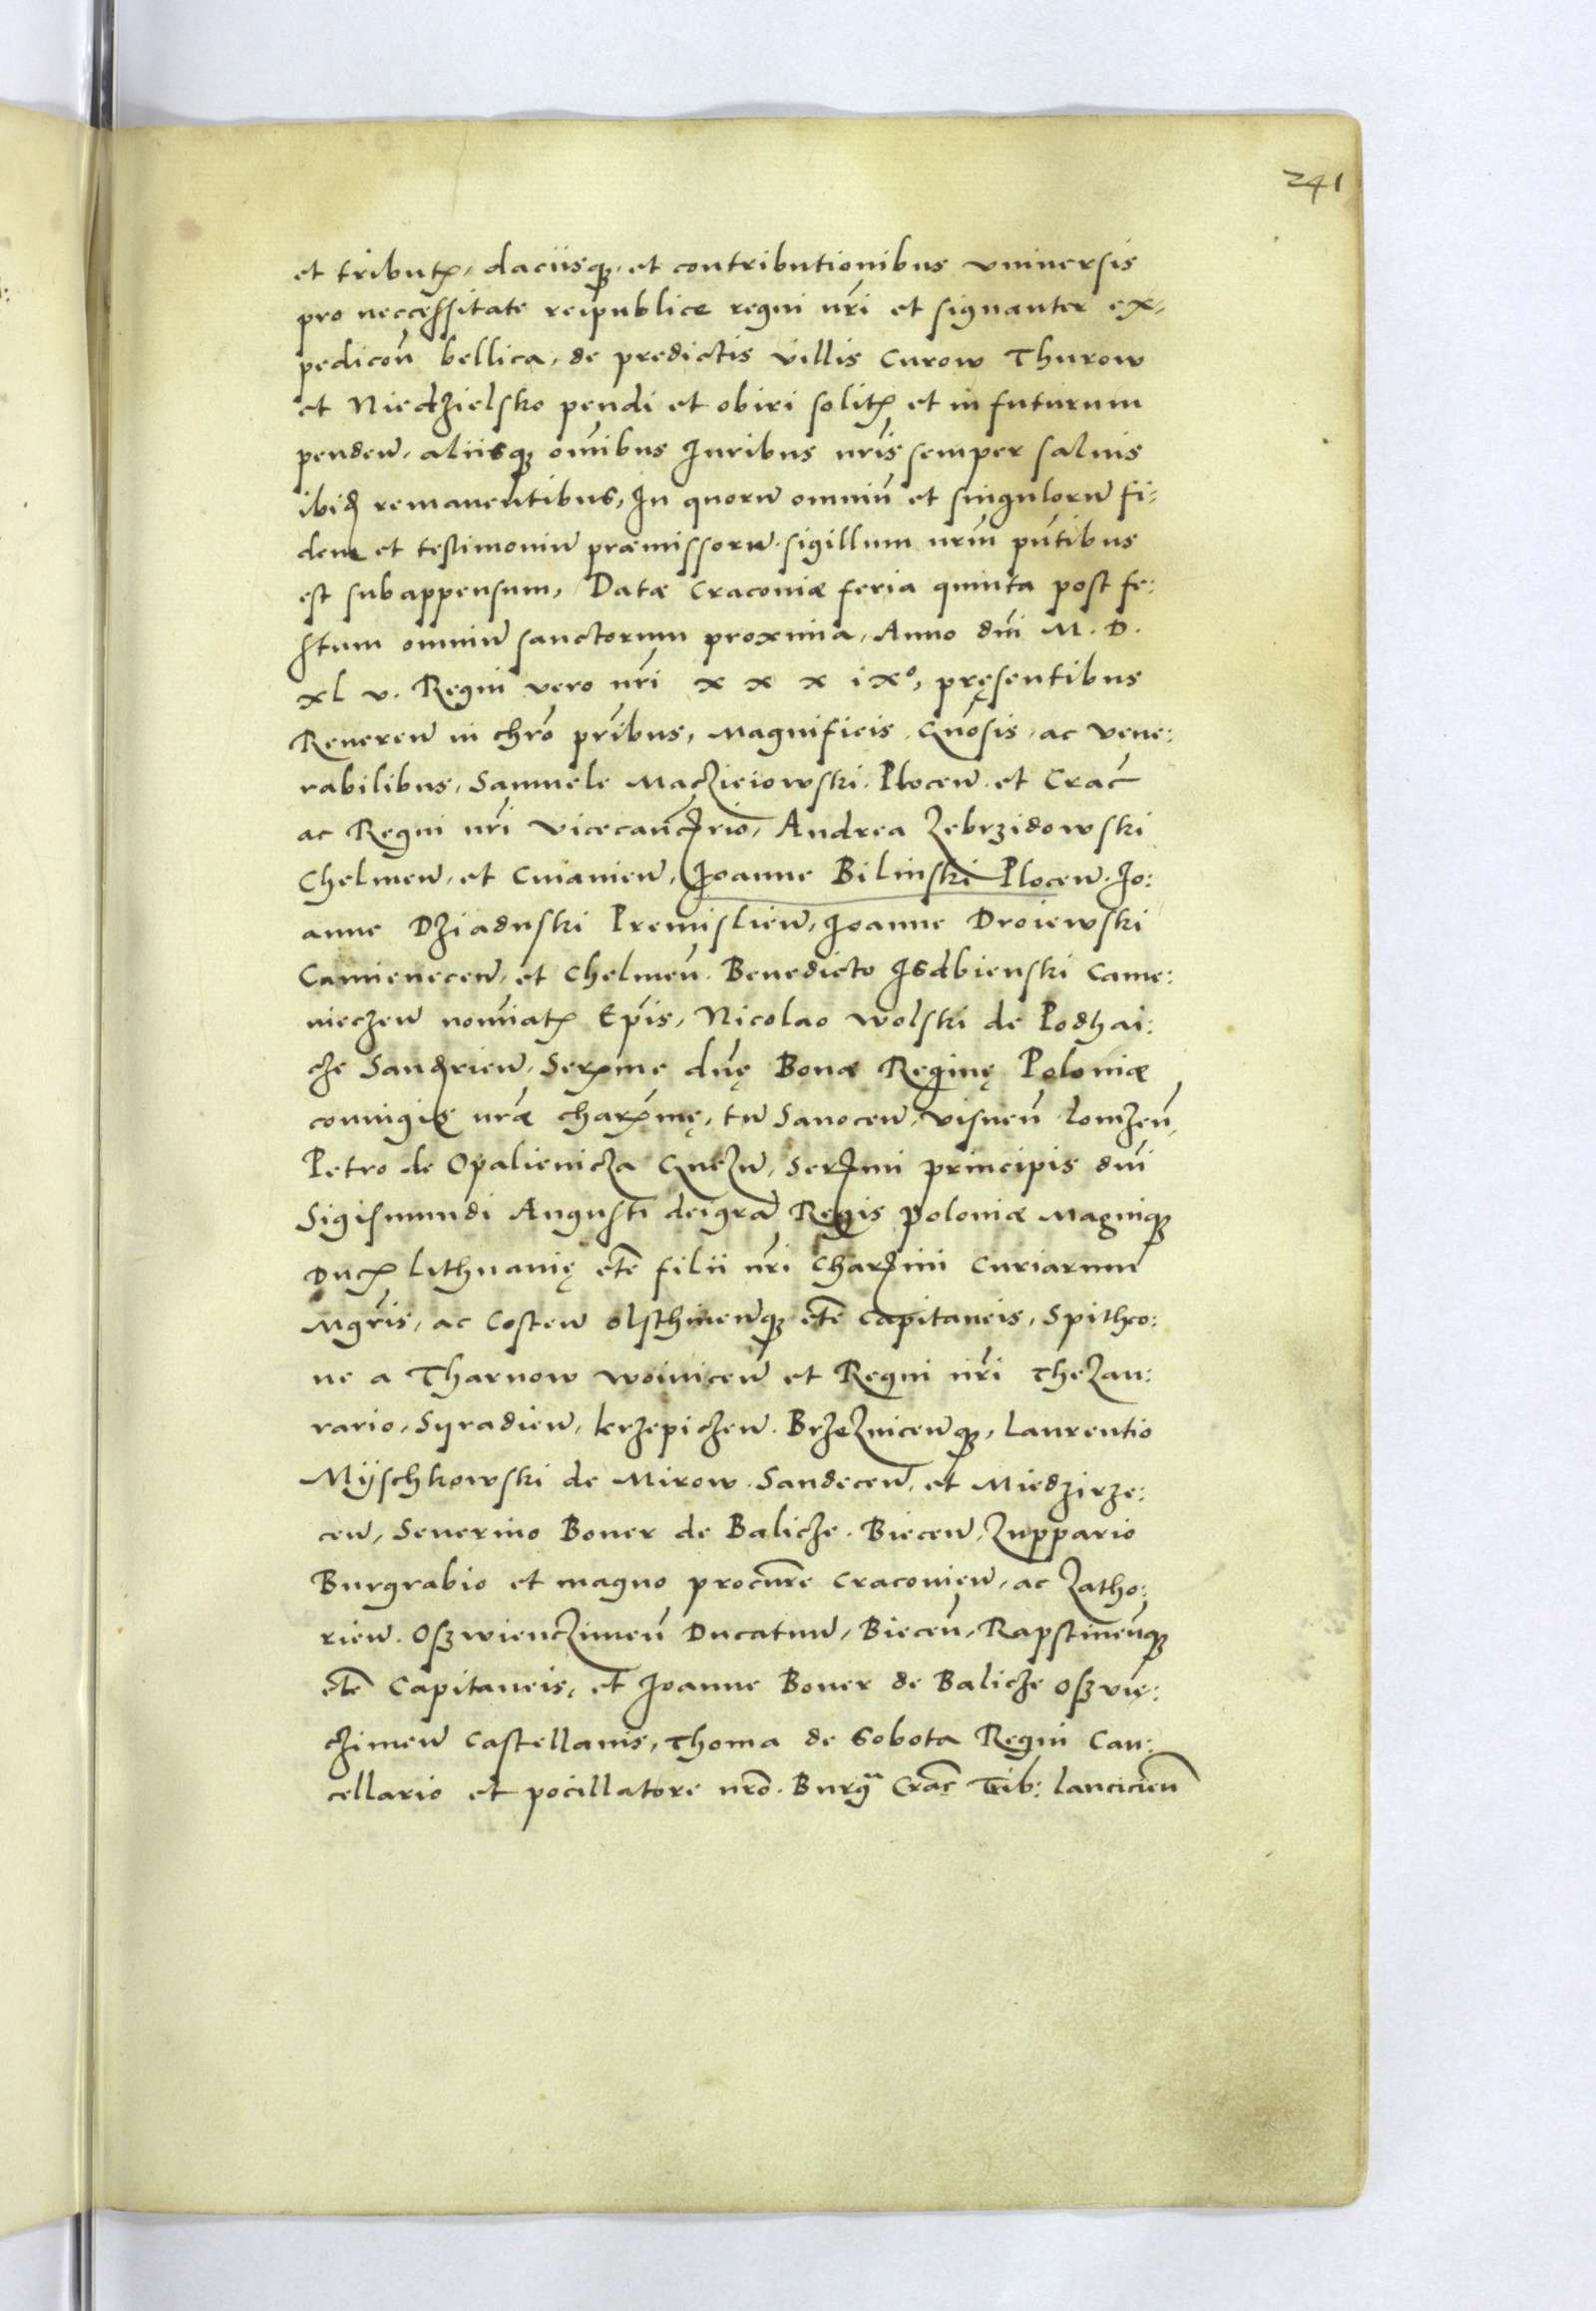 241
et tributꝭ, daciisqꝫ, et contributionibus vniuersis
pro neccessitate reipublice regni nr̄i et signanter ex-
pedicoñ bellica, de predictis villis Curow Thurow
et Niedzielsko pendi et obiri solitꝭ et in futurum
penden̄, aliisqꝫ oīnibus Iuribus nr̄is semper saluis
ibid̵ remanentibus, In quorū omniū et singulorū fi:
dem et testimoniū præmissorū sigillum nr̄m pn̄tibus
est subappensum, Datæ Cracoviæ feria quinta post fe:
stum omniū sanctorum proxima, Anno dn̄i M. D.
xl v. Regni vero nr̄i x x x ix°, pręsentibus
Reueren̄ in chr̄o pr̄ibus, Magnificis, Gn̄osis, ac vene:
rabilibus, Samuele Macziejowski Plocen̄ et Crac̄
ac Regni nr̄i vicecanc̄rio, Andrea Zebrzidowski
Chelmen̄, et Cuiauien̄, Joanne Bilinski Plocen̄. Jo:
anne Dziaduski Premislien̄, Joanne Droiewski
Camienecen̄, et Chelmen̄. Benedicto Isdbienski Came:
nieczen̄ nomīatꝭ Ep̄is, Nicolao Wolski de Podhai:
cze Sand̵rien̄, Serꝭme dn̄ę Bonæ Reginę Poloniæ
coniugis nr̄æ charꝭmę, tū Sanocen̄, Visnen̄ Lomzen̄,
Petro de Opalienicza Gnezn̄, Serꝭmi principis dn̄i
Sigismundi Augusti deigrā Regis Poloniæ Magniqꝫ
Ducꝭ Lithuanię etc̄ filii nr̄i Charꝭmi Curiarum
Mgr̄is, ac Costen̄ Olschinen̄qꝫ etc̄ Capitaneis, Spithco:
ne a Tharnow Woinicen̄ et Regni nr̄i Thezau:
rario, Syradien̄, krzepiczen̄. Brzeznicen̄qꝫ, Laurentio
Mÿschkowski de Mirow Sandecen̄, et Miedzirze:
cen̄, Seuerino Boner de Balicze. Biecen̄, Zuppario
Burgrabio et magno procur̄e Cracouien̄, ac Zatho:
rien̄. Osswienczimen̄ Ducatum, Biecen̄, Rapstinen̄qꝫ
etc̄ Capitaneis, et Joanne Boner de Balicze Osswię:
czimen̄ Castellanis, Thoma de Sobota Regni Can:
cellario et pocillatore nr̄o. Burgᵃ Crac̄ Trib: Lancicien̄